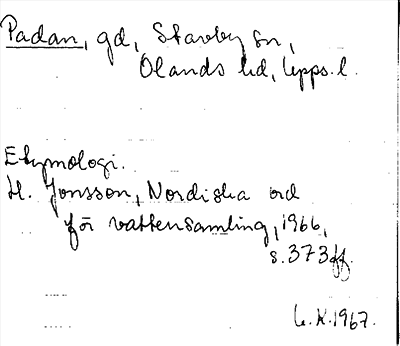 Padan, gd, Stavby sn,
Olands hd, Upps. l.
Etymologi.
H. Jonsson, Nordiska ord
för vattensamling, 1966,
s. 373 ff.
L.K. 1967.